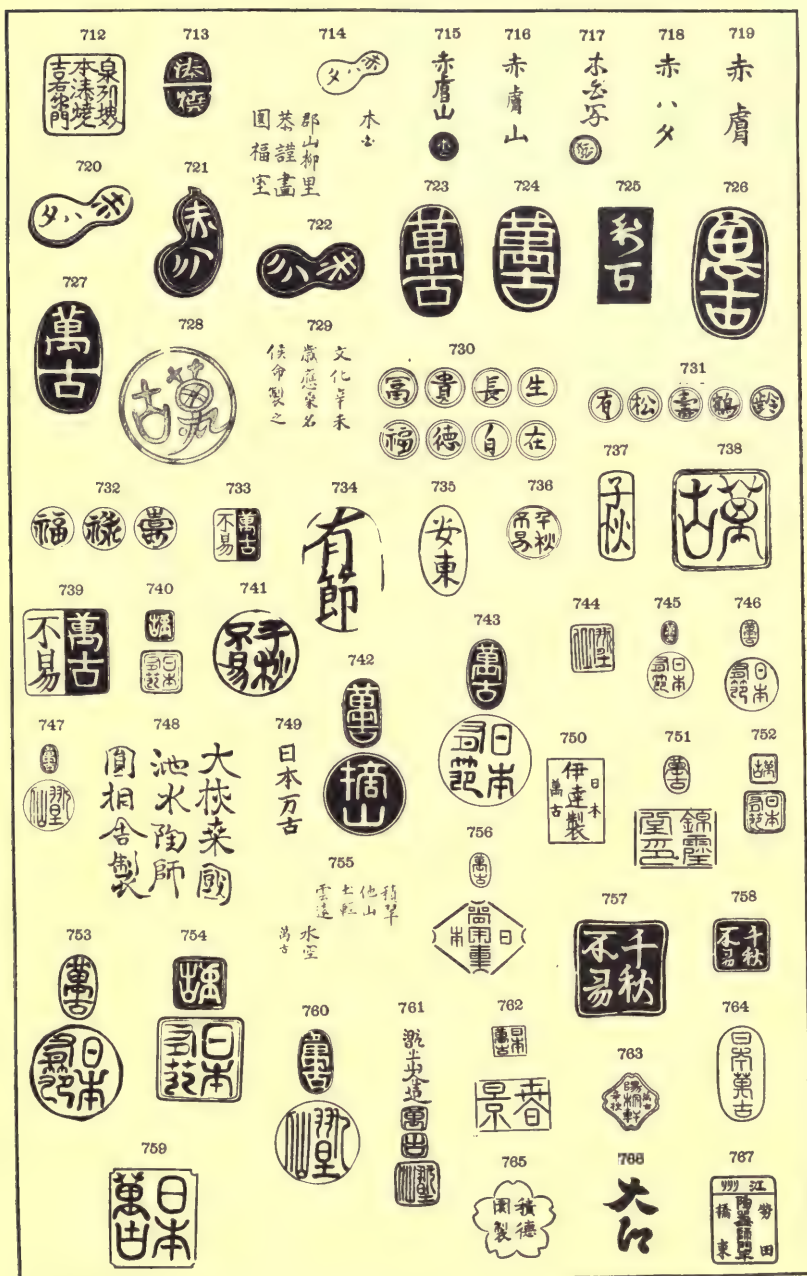 712
泉州堺
本湊焼
吉右衛門
713
湊燒
714
赤ハタ
木白
郡山柳里
恭謹畫
圓福室
715
赤膚山
716
赤膚山
717
木白写
718
赤ハタ
719
赤膚
720
赤ハタ
721
赤ハ
722
赤ハ
723
萬古
724
萬古
725
726
萬古
727
萬古
728
萬古
729
文化辛未
歳應桑名
侯命製之
730
富貴長生
福德自在
731
有松壽鶴齡
732
福祿壽
733
萬古
不易
734
有節
735
安東
736
千秋
不易
737
千秋
738
萬古
739
萬古
不易
740
萬古
日本
有節
741
千秋
不易
742
萬古
摘山
743
萬古
日本
有節
744
745
萬古
日本
有節
746
萬古
日本
有節
747
萬古
748
大校桑國
池水陶師
圓相舎製
749
日本万古
750
日本
伊達製
萬古
751
萬古
752
萬古
日本
有節
753
萬古
日本
有節
754
萬古
日本
有節
755
他山
萬古
756
萬古
日本
757
千秋
不易
758
千秋
不易
759
日本
萬古
760
萬古
761
萬古
762
日本
萬古
春景
763
764
日本萬古
765
積德
園製
766
大江
767
江
勢田
橋東